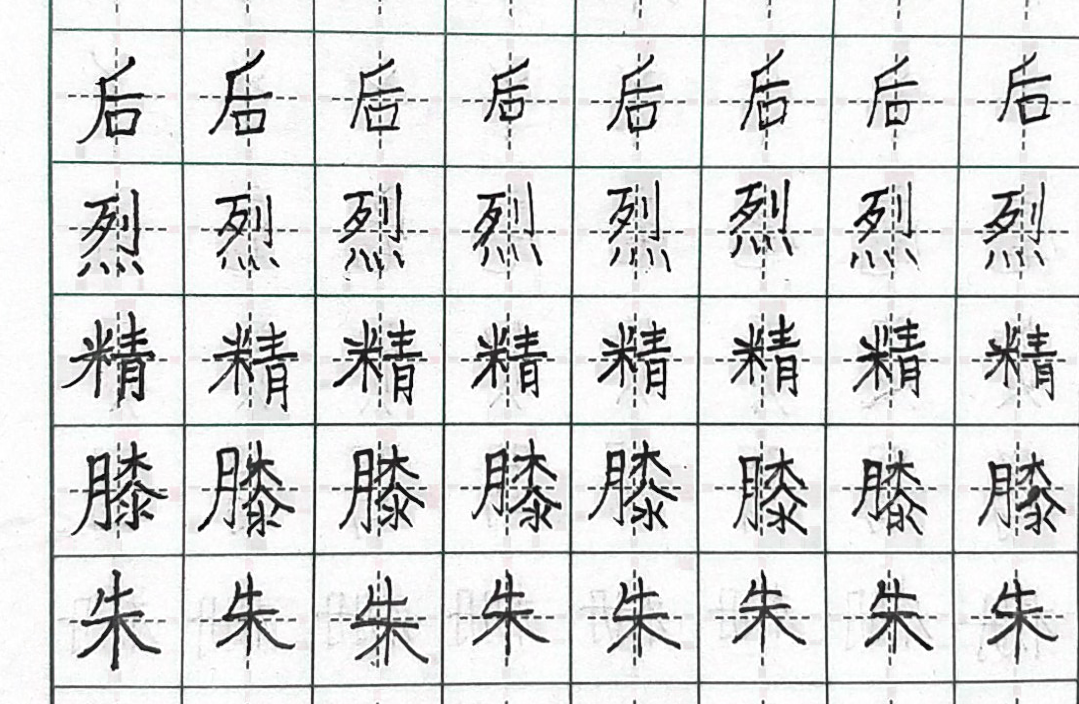 后后后后后后后后
烈烈烈烈烈烈烈烈
精精精精精精精精
膝膝膝膝膝膝膝膝
朱朱朱朱朱朱朱朱